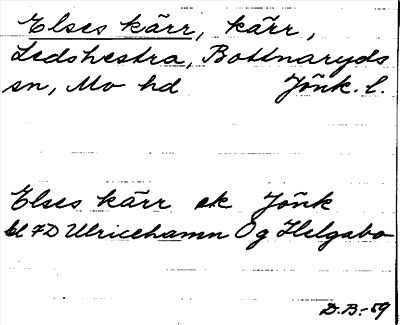 Elses kärr, kärr,
Ledshestra, Bottnaryds
sn, Mo hd Jönk. l.
Elses kärr ek Jönk
bl 7D Ulricehamn Og Helgabo
D.B.-59